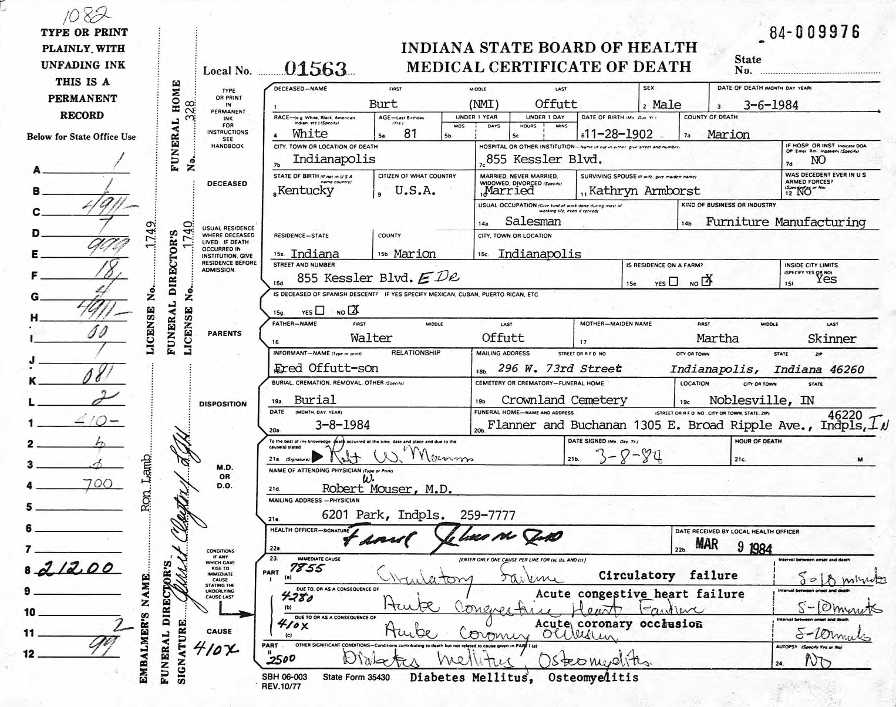 1082
TYPE OR PRINT
PLAINLY, WITH
UNFADING INK
THIS IS A
PERMANENT
RECORD
Below for State Office Use
84-009976
INDIANA STATE BOARD OF HEALTH
MEDICAL CERTIFICATE OF DEATH
Local No. 01563
State
No.
TYPE
OR PRINT
IN
PERMANENT
INK
FOR
INSTRUCTIONS
SEE
HANDBOOK
DECEASED—NAME FIRST MIDDLE LAST SEX DATE OF DEATH (MONTH DAY YEAR)
1 Burt (NMI) Offutt 2 Male 3 3-6-1984
RACE—(e.g. White, Black, American Indian, etc.) (Specify) AGE—Last Birthday (Yrs.) UNDER 1 YEAR UNDER 1 DAY DATE OF BIRTH (Mo. Day Yr.) COUNTY OF DEATH
MOS DAYS HOURS MINS
4 White 5a 81 5b. 5c 6 11-28-1902 7a Marion
CITY, TOWN OR LOCATION OF DEATH HOSPITAL OR OTHER INSTITUTION—Name (If not in either, give street and number) IF HOSP. OR INST. Indicate DOA, OP Emer. Rm. Inpatient (Specify)
7b Indianapolis 7c 855 Kessler Blvd. 7d NO
DECEASED
STATE OF BIRTH (If not in U.S.A. name country) CITIZEN OF WHAT COUNTRY MARRIED, NEVER MARRIED, WIDOWED, DIVORCED (Specify) SURVIVING SPOUSE (If wife, give maiden name) WAS DECEDENT EVER IN U.S. ARMED FORCES? (Specify Yes or No)
8 Kentucky 9 U.S.A. 10 Married 11 Kathryn Armborst 12 NO
USUAL OCCUPATION (Give kind of work done during most of working life, even if retired) KIND OF BUSINESS OR INDUSTRY
14a Salesman 14b Furniture Manufacturing
USUAL RESIDENCE WHERE DECEASED LIVED. IF DEATH OCCURRED IN INSTITUTION, GIVE RESIDENCE BEFORE ADMISSION.
RESIDENCE—STATE COUNTY CITY, TOWN OR LOCATION
15a Indiana 15b Marion 15c Indianapolis
STREET AND NUMBER IS RESIDENCE ON A FARM? INSIDE CITY LIMITS (SPECIFY YES OR NO)
15d 855 Kessler Blvd. E DR 15e YES NO X 15f Yes
IS DECEASED OF SPANISH DESCENT? IF YES SPECIFY MEXICAN, CUBAN, PUERTO RICAN, ETC
15g. YES NO X
PARENTS
FATHER—NAME FIRST MIDDLE LAST MOTHER—MAIDEN NAME FIRST MIDDLE LAST
16 Walter Offutt 17 Martha Skinner
INFORMANT—NAME (Type or print) RELATIONSHIP MAILING ADDRESS STREET OR R F D NO CITY OR TOWN STATE ZIP
Fred Offutt-son 18b. 296 W. 73rd Street Indianapolis, Indiana 46260
DISPOSITION
BURIAL, CREMATION, REMOVAL, OTHER (Specify) CEMETERY OR CREMATORY—FUNERAL HOME LOCATION CITY OR TOWN STATE
19a Burial 19b Crownland Cemetery 19c Noblesville, IN
DATE (MONTH, DAY, YEAR) FUNERAL HOME—NAME AND ADDRESS (STREET OR R F D NO CITY OR TOWN, STATE, ZIP)
46220
20a 3-8-1984 20b. Flanner and Buchanan 1305 E. Broad Ripple Ave., Indpls, IN
M.D.
OR
D.O.
To the best of my knowledge, death occurred at the time, date and place and due to the cause(s) stated DATE SIGNED (Mo. Day Yr.) HOUR OF DEATH
21a (Signature) 21b. 3-8-84 21c. M
NAME OF ATTENDING PHYSICIAN (Type or Print)
W.
21d. Robert Mouser, M.D.
MAILING ADDRESS—PHYSICIAN
21e 6201 Park, Indpls. 259-7777
HEALTH OFFICER—SIGNATURE DATE RECEIVED BY LOCAL HEALTH OFFICER
22a 22b MAR 9 1984
CONDITIONS IF ANY WHICH GAVE RISE TO IMMEDIATE CAUSE STATING THE UNDERLYING CAUSE LAST
CAUSE
410X
23. IMMEDIATE CAUSE (ENTER ONLY ONE CAUSE PER LINE FOR (a), (b), AND (c)) Interval between onset and death
PART I 7855 (a) Circulatory Failure Circulatory failure 5-10 minutes
DUE TO, OR AS A CONSEQUENCE OF Interval between onset and death
4280 (b) Acute Congestive Heart Failure Acute congestive heart failure 5-10 minutes
DUE TO OR AS A CONSEQUENCE OF Interval between onset and death
410X (c) Acute Coronary Occlusion Acute coronary occlusion 5-10 minutes
PART II OTHER SIGNIFICANT CONDITIONS—Conditions contributing to death but not related to cause given in PART I (a) AUTOPSY (Specify Yes or No)
2500 Diabetes Mellitus, Osteomyelitis 24. No
SBH 06-003 State Form 35430 Diabetes Mellitus, Osteomyelitis
REV.10/77
A
B
C 4911
D
E 999
F 18
G 4
H 4911
I 00
J
K 081
L
1 410-
2
3
4 700
5
6
7
8 21200
9
10
11 2
12 99
EMBALMER'S NAME Ron Lamb LICENSE No. 1749
FUNERAL DIRECTOR'S SIGNATURE FUNERAL DIRECTOR'S LICENSE No. 1740
FUNERAL HOME No. 328